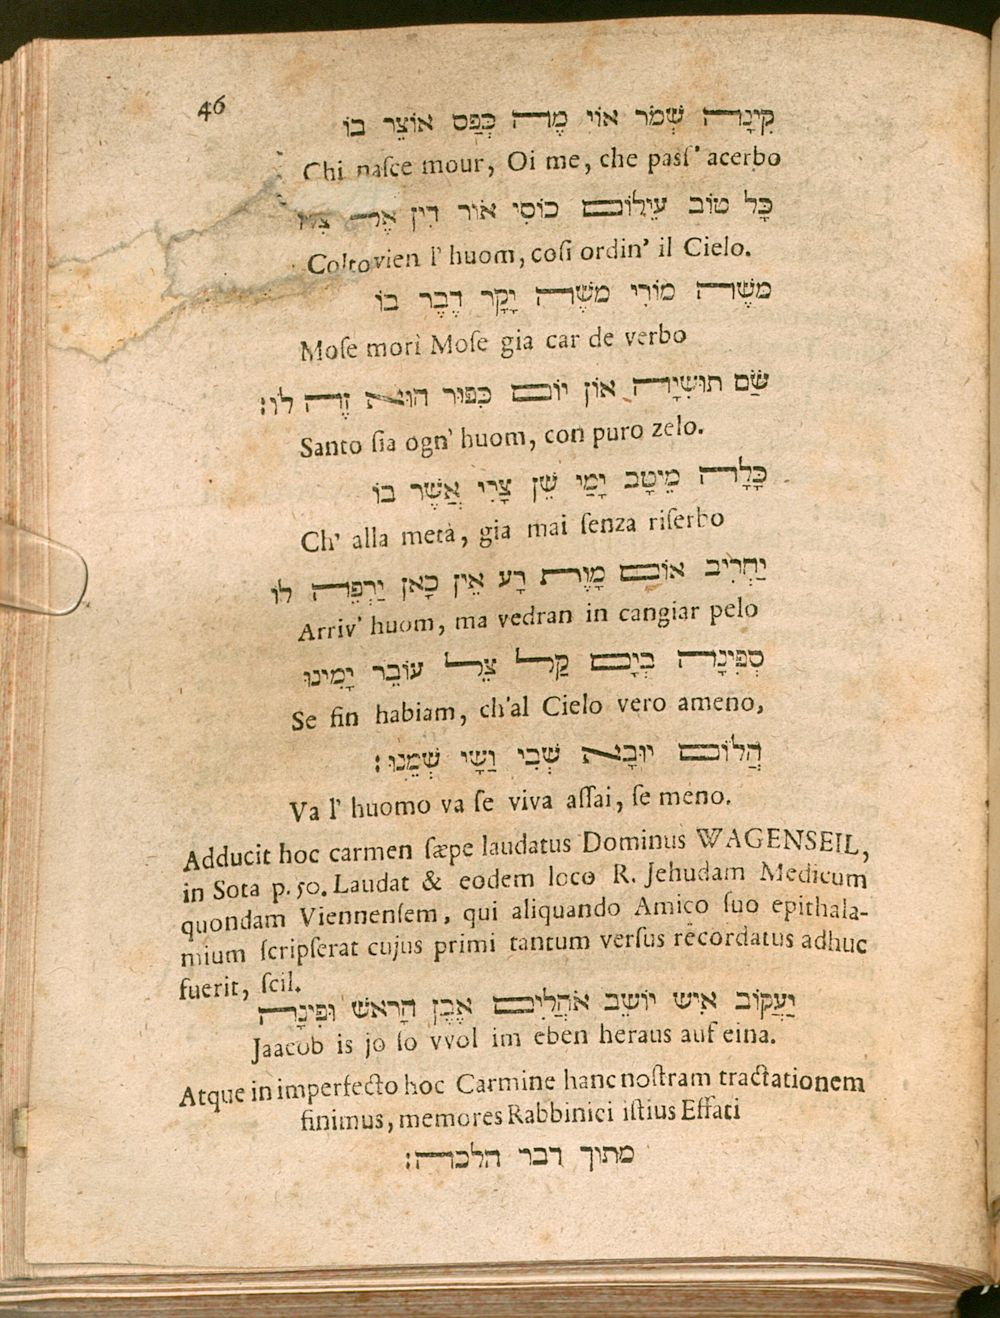 46
קִינָה שְׁמֹר אוֹי מֶה כְּפַס אוֹצֵר בוֹ
Chi naſce mour, Oi me, che paſſ' acerbo
כָּל טוֹב עֵילוֹם כוֹסִי אוֹר דִין אֶל
Colto vien l' huom, coſi ordin' il Cielo.
משֶׁה מוֹרִי משֶׁה יָקָר דֶבֶר בוֹ
Moſe morì Moſe gia car de verbo
שַׂם תוּשִׁיָה אוֹן יוֹם כִּפוּר הוּא זֶה לוֹ:
Santo ſia ogn' huom, con puro zelo.
כָּלָה מֵיטָב יָמַי שֵׁן צָרִי אֲשֶׁר בוֹ
Ch' alla metà, gia mai ſenza riſerbo
יַחְרִיב אוֹם מָוֶת רָע אֵין כָאן יַרְפֵה לוֹ
Arriv' huom, ma vedran in cangiar pelo
סְפִּינָה בְיָם קַל צֵל עוֹבֵר יָמֵינוּ
Se fin habiam, ch'al Cielo vero ameno,
הֲלוֹם יוּבָא שְׁבִי וַשָׁי שְׁמֵנוּ:
Va l' huomo va ſe viva aſſai, ſe meno.
Adducit hoc carmen ſæpe laudatus Dominus WAGENSEIL,
in Sota p. 50. Laudat & eodem loco R. Jehudam Medicum
quondam Viennenſem, qui aliquando Amico ſuo epithala-
mium ſcripſerat cujus primi tantum verſus recordatus adhuc
fuerit, ſcil.
יַעֲקוֹב אִיש יוֹשֵב אֹהָלִים אֶבֶן הָראֹש וּפִינָה
Jaacob is jo ſo vvol im eben heraus auf eina.
Atque in imperfecto hoc Carmine hanc noſtram tractationem
finimus, memores Rabbinici iſtius Effati
מתוך דבר הלכה: